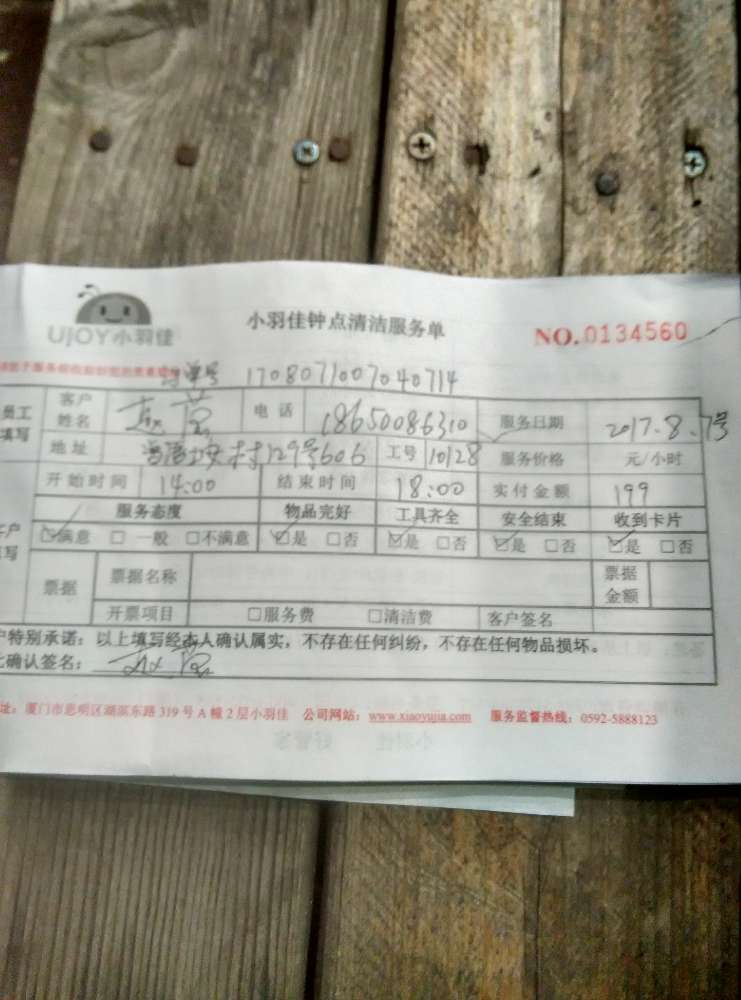 UJOY小羽佳
小羽佳钟点清洁服务单
NO.0134560
订单号 1708071007040714
员工填写 客户姓名 电话 18650086310 服务日期 2017.8.7号
地址 村129号606 工号 10128 服务价格 元/小时
开始时间 14:00 结束时间 18:00 实付金额 199
服务态度 物品完好 工具齐全 安全结束 收到卡片
☑满意 □一般 □不满意 ☑是 □否 ☑是 □否 ☑是 □否 ☑是 □否
票据 票据名称 票据金额
开票项目 □服务费 □清洁费 客户签名
户特别承诺：以上填写经本人确认属实，不存在任何纠纷，不存在任何物品损坏。
确认签名：
址：厦门市思明区湖滨东路319号A幢2层小羽佳 公司网站：www.xiaoyujia.com 服务监督热线：0592-5888123